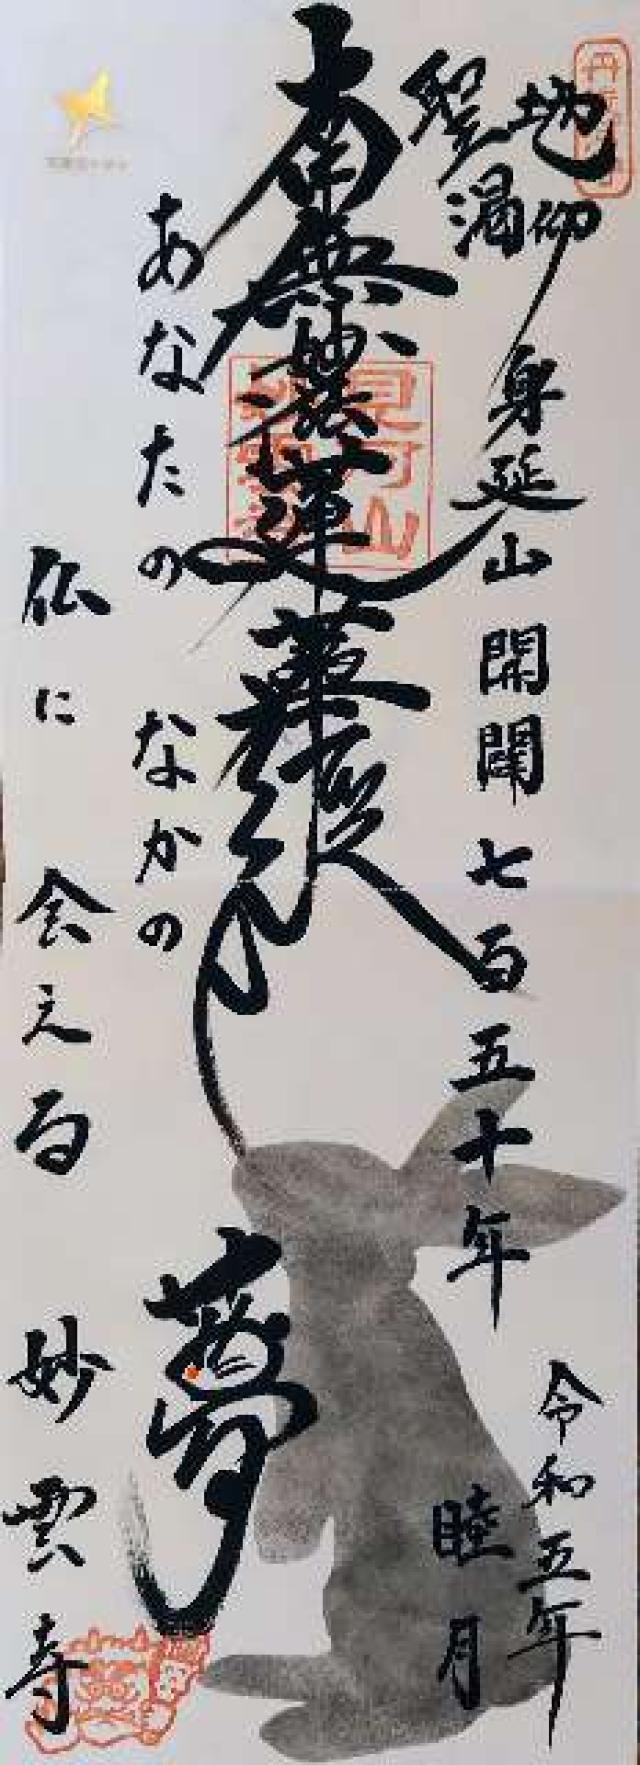 渇仰
聖地
身延山開闢七百五十年
令和五年
睦月
南無妙法蓮華経
夢
あなたの なかの
仏に 会える 妙雲寺